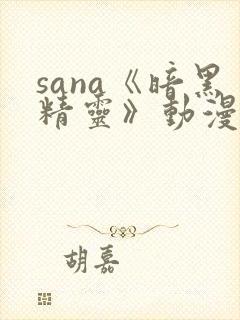 sana《暗黑
精靈》動漫
胡嘉